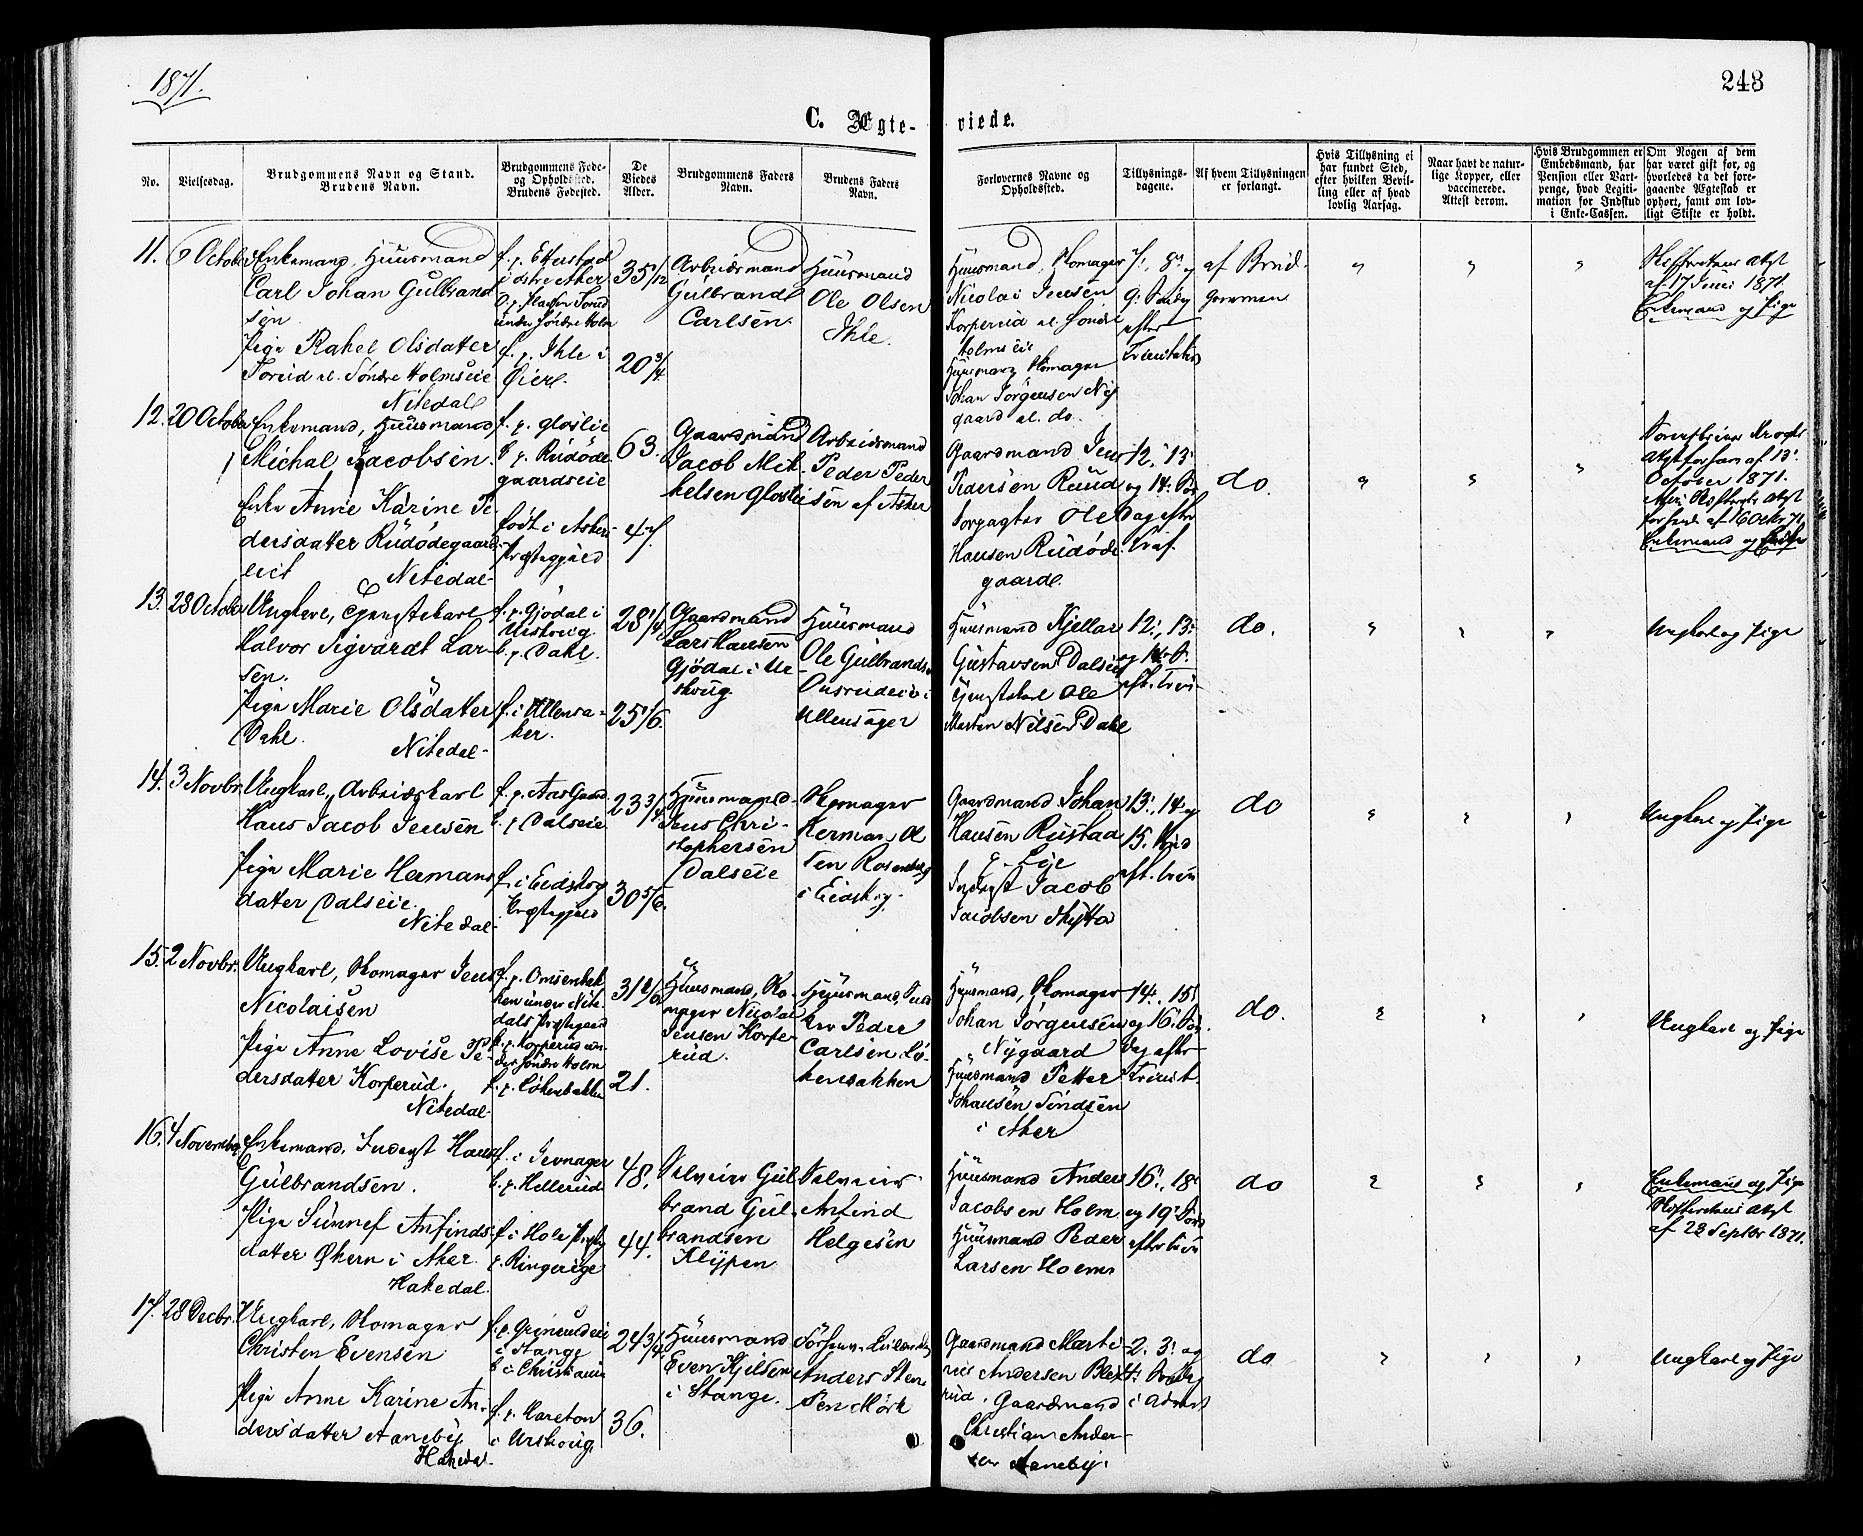 1871.
248
C. Ægte-
viede.
No.
Vielsesdag.
Brudgommens Navn og Stand.
Brudens Navn.
Brudgommens Føde-
og Opholdssted.
Brudens Fødested.
De
Viedes
Alder.
Brudgommens Faders
Navn.
Brudens Faders
Navn.
Forlovernes Navne og
Opholdssted.
Tillysnings-
dagene.
Af hvem Tillysningen
er forlangt.
Hvis Tillysning ei
har fundet Sted,
efter hvilken Bevil-
ling eller af hvad
lovlig Aarsag.
Naar havt de natur-
lige Kopper, eller
vaccinerede.
Attest derom.
Hvis Brudgommen er
Embedsmand, har
Pension eller Vart-
penge, hvad Legiti-
mation for Indskud
i Enke-Cassen.
Om Nogen af dem
har været gift før, og
hvorledes da det fore-
gaaende Ægteskab er
ophørt, samt om lov-
ligt Skifte er holdt.
11.
6 Octobr
Enkemand, Huusmand
Carl Johan Gulbrand
sen
Pige Rahel Olsdater
Torud al. Søndre Holmseie
Nitedal
i østre Aker
under Søndre Holm
f. p. Ihle i
Øier.
35 1/12
20 3/4
Arbeidsmand
Gulbrand
Carlsen.
Huusmand
Ole Olsen
Ihle.
Huusmand, Skomager
Nicolai Jensen
Korperud al. Sondr
Holmseie
Huusmand Skomager
Johan Jörgensen Ny
gaard al. do.
7., 8de og
9. Søndg
efter
Trinitatis
af Brud-
gommen
"
"
"
Skifteretens Attest
af 17 Juni 1871.
Enkemand og Pige
12.
20 October
Enkemand, Huusmand
Michal Jacobsen.
Enke Anne Karine Pe
dersdater Rüdødegaard
seie
Nitedal
b. p. Rüdøde
gaardseie
født i Asker
Præstegjæld
63.
47.
Gaardmand
Jacob Mik
kelsen
Arbeidsmand
Peder Peder
sen af Asker
Gaardmand Jens
Pedersen Ruud
Forpagter Ole
Hansen Rüdøde
gaard.
12., 13.
og 14. Søn
dag efter
Trif.
do.
"
"
"
October 1871.
Enkemand og Enke
13.
28 Octobr
Ungkarl, Tjenestekarl
Halvor Sigvardt Lar-
sen.
Pige Marie Olsdater
Dahl.
Nitedal
f. p. Gjødal i
Urskoug
b. p. Dahl.
f. i Ullensa-
ker.
28 1/4
25 1/6.
Gaardmand
Lars Hansen
Gjødal i Ur
skoug.
Huusmand
Ole Gulbrands
Onsrudeie i
Ullensager
Huusmand Kjellar
Gustavsen Dalseie
Tjenestekarl Ole
Marten Nilsen Dahl
12., 13.
og 14. S.
eft. Trini-
do.
"
"
"
Ungkarl og Pige
14.
3 Novbr.
Ungkarl, Arbeidskarl
Hans Jacob Jensen
Pige Marie Hermans
dater Dalseie.
Nitedal
b. p. Dalseie
f. i Eidskog
Præstegjæld
23 3/4
30 5/6.
Huusmand
Jens Chri-
stophersen
Dalseie
Skomager
Herman Ol
sen Rosenberg
i Eidskog.
Gaardmand Johan
Hansen Rustad
p. Eie
Inderst Jacob
Jacobsen Skytta
13., 14. og
15. Sønd
eft. Trin
do
"
"
"
Ungkarl og Pige
15.
2 Novbr.
Ungkarl, Skomager Jens
Nicolaisen
Pige Anne Lovise Pe-
dersdatter Korperud.
Nitedal
ken under Nite
dals Præstegaard
b. p. Korperud un-
der Søndre Holm
f. p. Løkenbakken
21.
Huusmand, Sko-
mager Nicolai
Jensen Korpe-
rud.
Huusmand,
Peder
Carlsen Lø-
kensakken
Huusmand, Skomager
Johan Jørgensen
Nygaard
Huusmand Petter
Johansen
i Aker
14., 15.
og 16. Søn
dag efter
Trinit.
do.
"
"
"
Ungkarl og Pige
16.
4 November
Enkemand, Inderst Hans
Gulbrandsen.
Pige Sünnef Anfinds-
dater Økern i Aker
Hakedal.
f. i Jevnager
b. p. Hellerud
f. i Hole Præstg
p. Ringerige
48.
44.
Selveier Gul
brand Gul-
brandsen
Klypen
Selveier
Anfind
Helgesen
Huusmand Anders
Jacobsen Holm
Huusmand Peder
Larsen Holm
16., 18.
og 19. Sønd
efter Trin
do
"
"
"
Enkemand og Pige
Skifteretens Attest
af 28 Septbr 1871.
17.
28 Decbr.
Ungkarl, Skomager
Christen Evensen
Pige Anne Karine An-
dersdatter Aaneby
Hakedal
i Stange
b. i Christiania
f. p. Hareton
i Urskoug
24 3/4
36.
Huusmand
Even Kjelsen
i Stange.
Anders Sten
sen Mörk
Gaardmand Marti-
nus Andersen Blek
rud. Gaardmand
Christian Ander-
sen Aaneby.
2. 3. og
4. Søndg
i Advent
do
"
"
"
Ungkarl og Pige